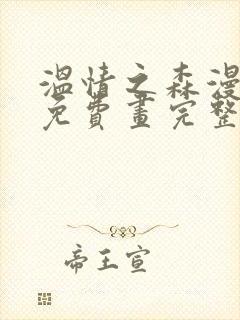 溫情之森漫
免費畫完整
帝王宣